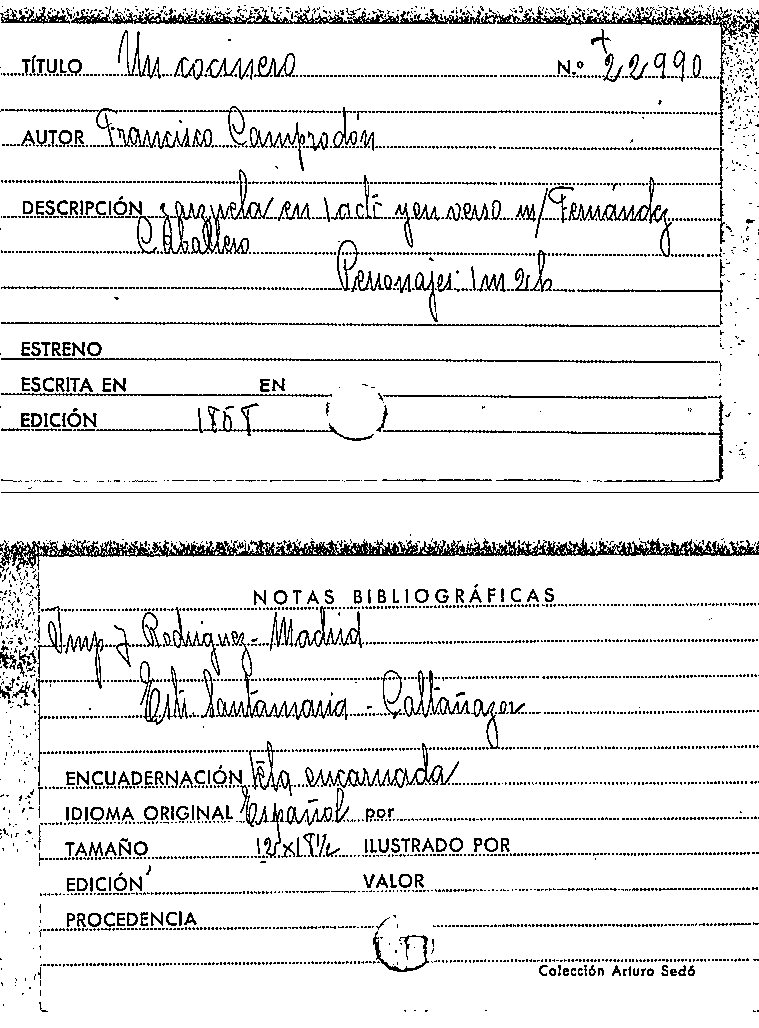 TÍTULO Un cocinero N.º 22990
AUTOR Francisco Camprodón
DESCRIPCIÓN zarzuela en 1 acto y en verso m/ Fernández
Caballero
Personajes: 1m 2h
ESTRENO
ESCRITA EN EN
EDICIÓN
NOTAS BIBLIOGRÁFICAS
Imp J Rodriguez - Madrid
Santamaria - Caltañazor
ENCUADERNACIÓN tela encarnada
IDIOMA ORIGINAL Español por
TAMAÑO ILUSTRADO POR
EDICIÓN VALOR
PROCEDENCIA
Colección Arturo Sedó